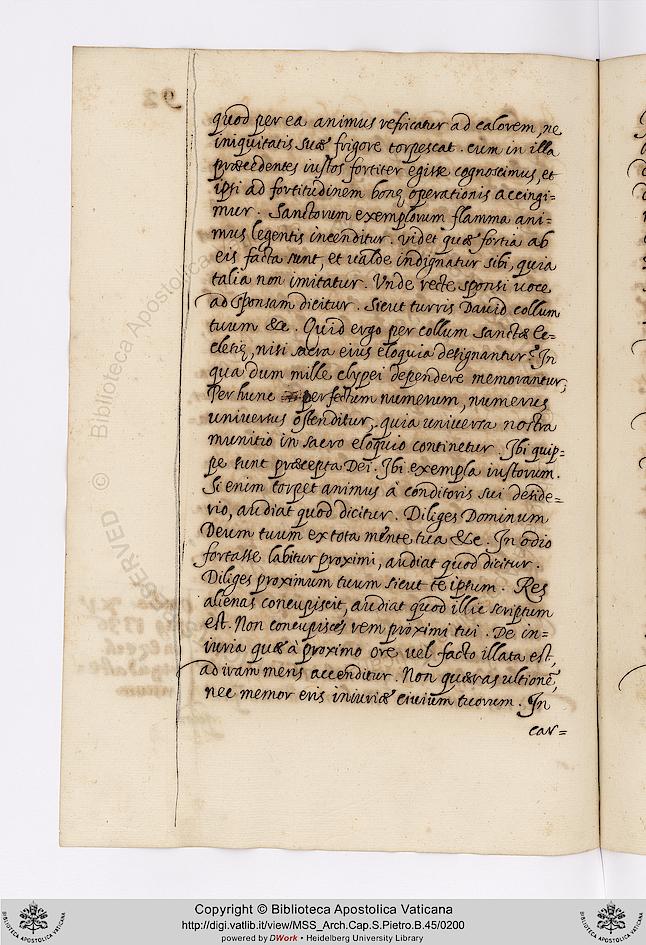 quod per ea animus refricatur ad calorem, ne
iniquitatis suæ frigore torpescat. cum in illa
præcedentes iustos fortiter egisse cognoscimus, et
ipsi ad fortitudinem bonę operationis accingi=
mur. Sanctorum exemplorum flamma ani=
mus legentis incenditur. videt quæ fortia ab
eis facta sunt, et valde indignatur sibi, quia
talia non imitatur. Vnde recte sponsi uoce
ad sponsam dicitur. Sicut turris Dauid collum
tuum &c. Quid ergo per collum sanctæ Ec=
clesię, nisi sacra eius eloquia designantur? In
qua dum mille clypei dependere memorantur,
Per hunc perfectum numerum, numerus
universus ostenditur, quia universa nostra
munitio in sacro eloquio continetur. Ibi quip=
pe sunt præcepta Dei. Ibi exempla iustorum.
Si enim torpet animus à conditoris sui deside=
rio, audiat quod dicitur. Diliges Dominum
Deum tuum ex tota mẽnte tua &c. In odio
fortasse labitur proximi, audiat quod dicitur.
Diliges proximum tuum sicut te ipsum. Res
alienas concupiscit, audiat quod illic scriptum
est. Non concupisces rem proximi tui. De in=
iuria quæ à proximo ore vel facto illata est,
ad iram mens accenditur. Non quæras ultionẽ,
nec memor eris iniuriæ civium tuorum. In
car=
92
Biblioteca Apostolica
©
RESERVED
Copyright © Biblioteca Apostolica Vaticana
http://digi.vatlib.it/view/MSS_Arch.Cap.S.Pietro.B.45/0200
powered by DWork • Heidelberg University Library
BIBLIOTECA APOSTOLICA VATICANA
BIBLIOTECA APOSTOLICA VATICANA